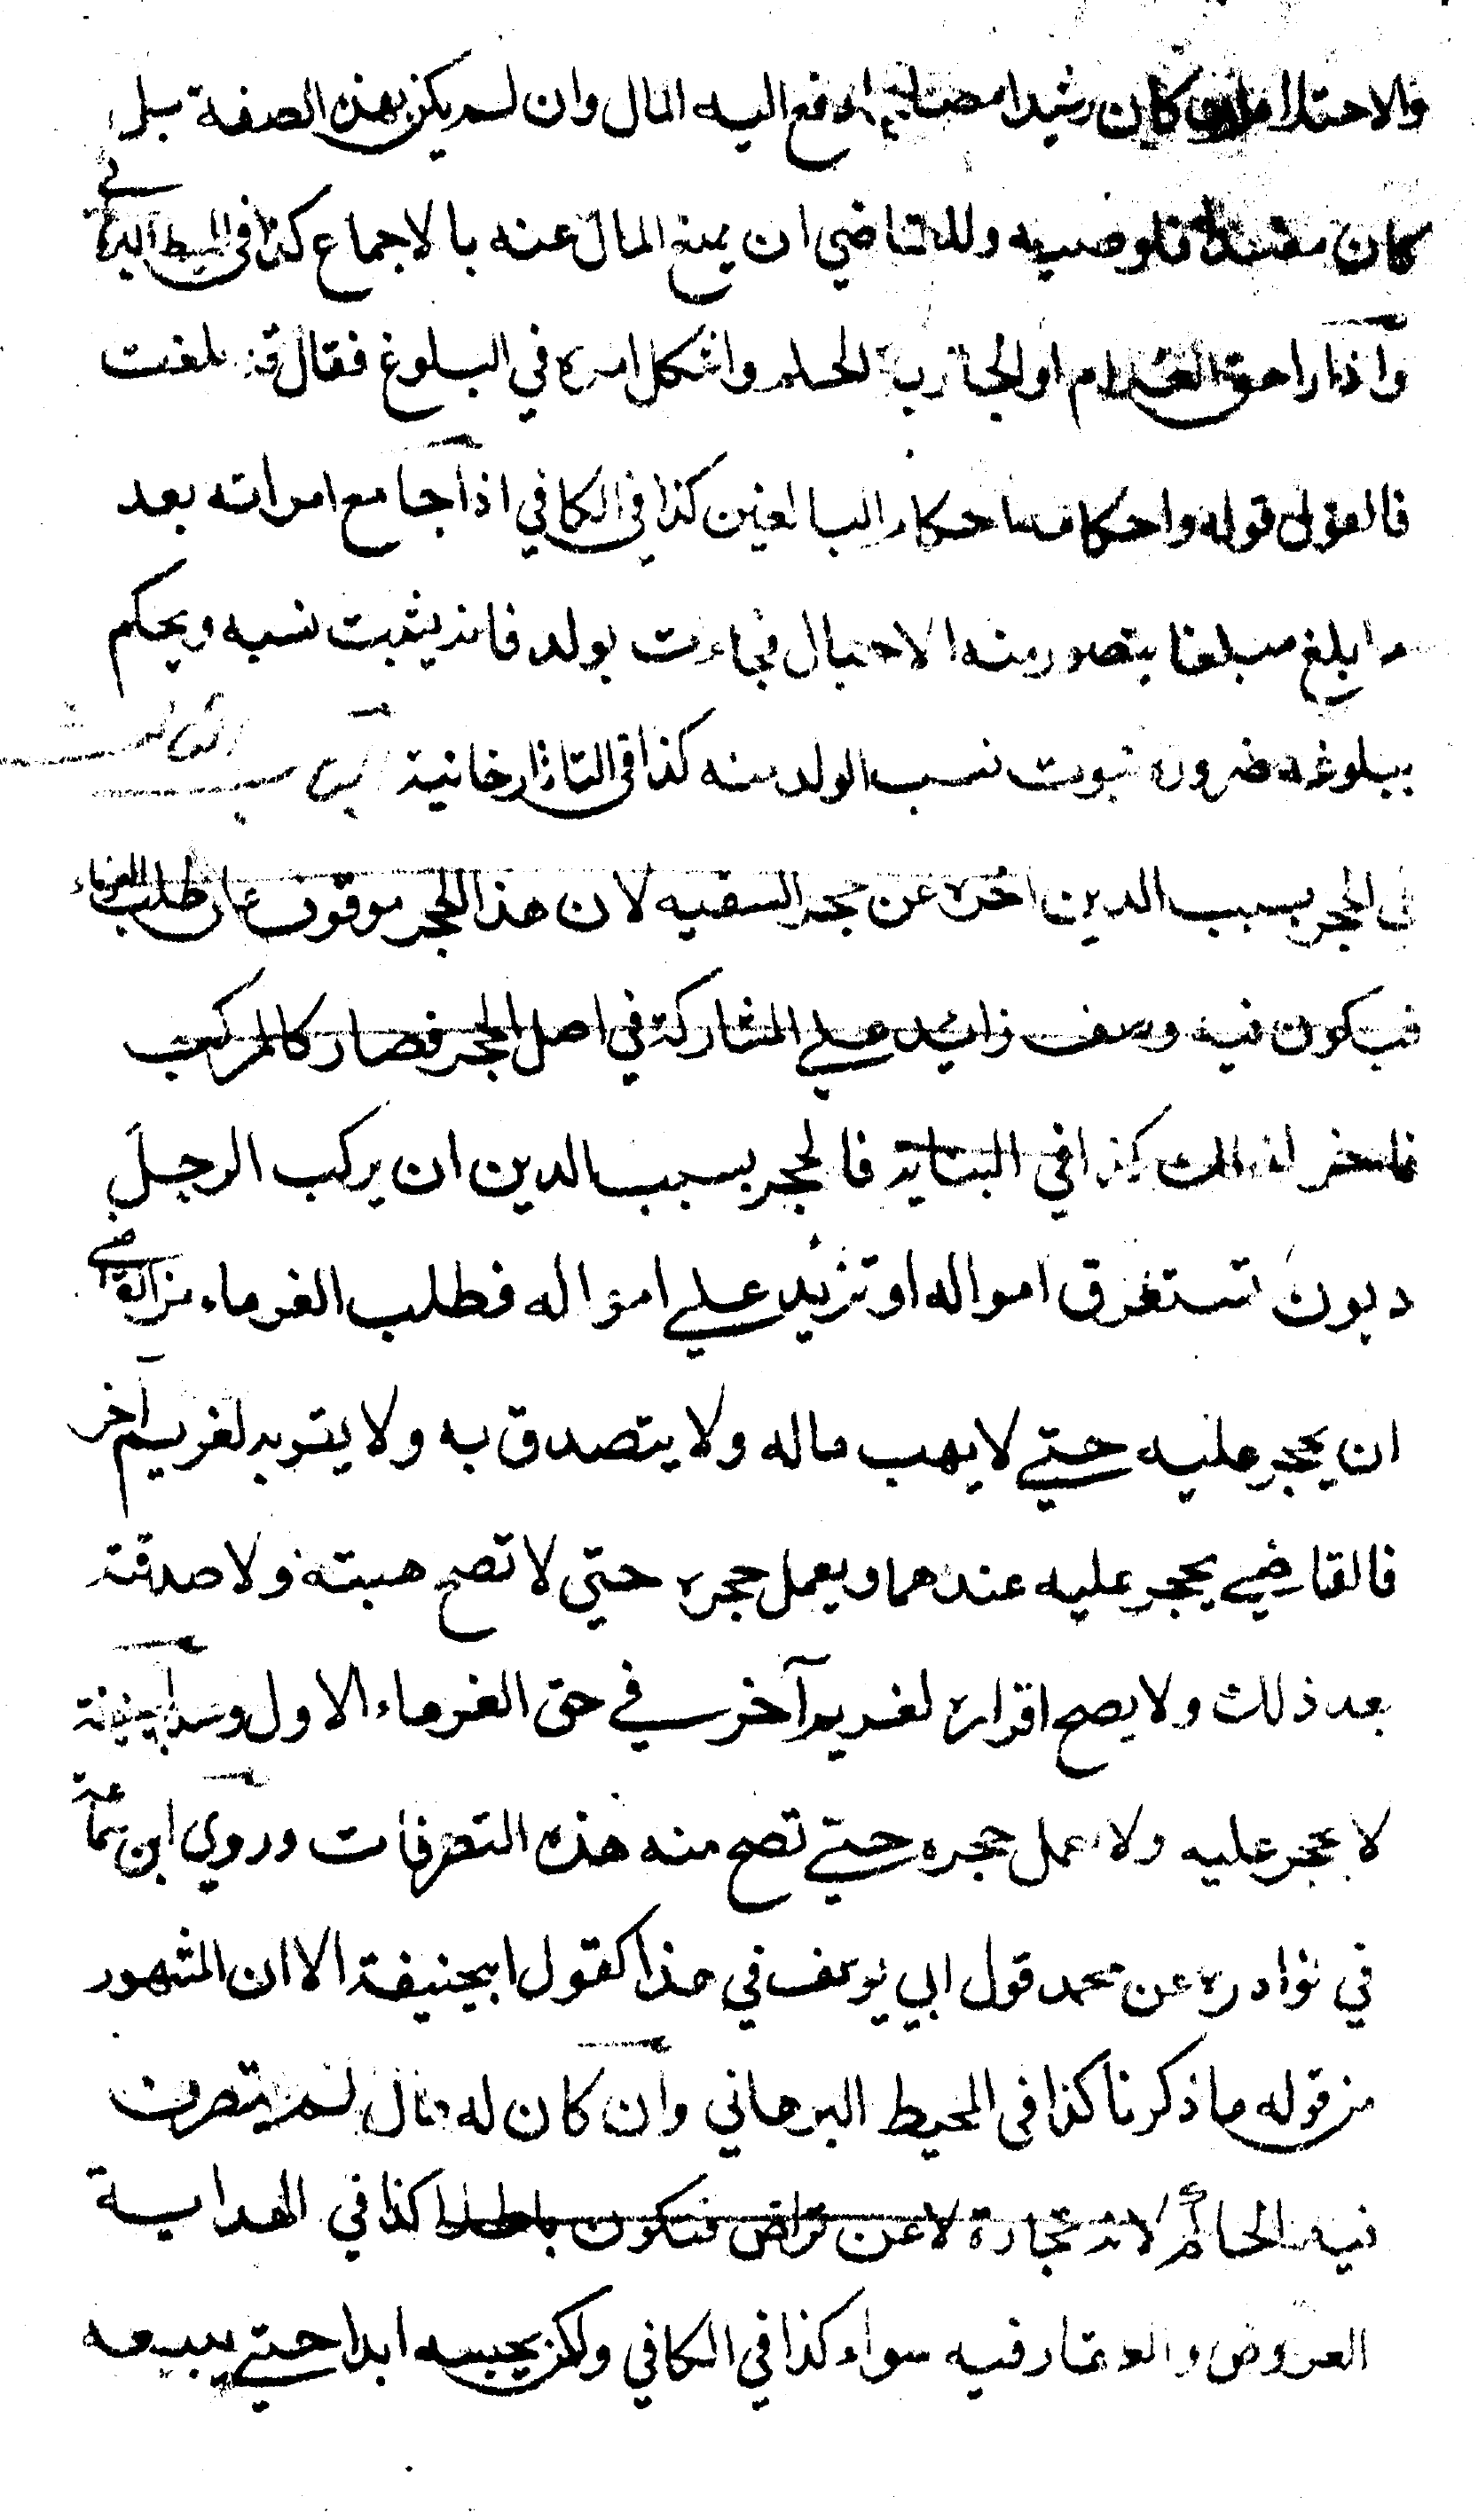 والاحتلام فان كان رشيدا مصلحا دفع اليه المال وان لم يكن بهذه الصفة بل
كان مفسدا فلوصيه وللقاضي ان يمنع المال عنه بالاجماع كذا في المحيط البرهاني
واذا راهق الغلام او الجارية الحلم واشكل امره في البلوغ فقال قد بلغت
فالقول قوله واحكامه احكام البالغين كذا في الكافي اذا جامع امراته بعد
ما بلغ مبلغا يتصور منه الاحبال فجاءت بولد فانه يثبت نسبه ويحكم
ببلوغه ضرورة ثبوت نسب الولد منه كذا في التاتارخانية
في الحجر بسبب الدين اخره عن حجر السفيه لان هذا الحجر موقوف على طلب الغرماء
فيكون فيه وصف زايد على المشاركة في اصل الحجر فصار كالمركب
فاخر لذلك كذا في البناية فالحجر بسبب الدين ان يركب الرجل
ديون تستغرق امواله او تزيد على امواله فطلب الغرماء من القاضي
ان يحجر عليه حتي لا يهب ماله ولا يتصدق به ولا يقر به لغريم آخر
فالقاضي يحجر عليه عندهما ويعمل حجره حتي لا تصح هبته ولا صدقته
بعد ذلك ولا يصح اقراره لغريم آخر في حق الغرماء الاول وعند ابيحنيفة
لا يحجر عليه ولا يعمل حجره حتي تصح منه هذه التصرفات وروي ابن سماعة
في نوادره عن محمد قول ابي يوسف في هذا كقول ابيحنيفة الا ان المشهور
من قوله ما ذكرنا كذا في المحيط البرهاني وان كان له مال لم يتصرف
فيه الحاكم لانه تجارة لا عن تراض فتكون باطلا كذا في الهداية
العروض والعقار فيه سواء كذا في الكافي ولكن يحبسه ابدا حتي يبيعه